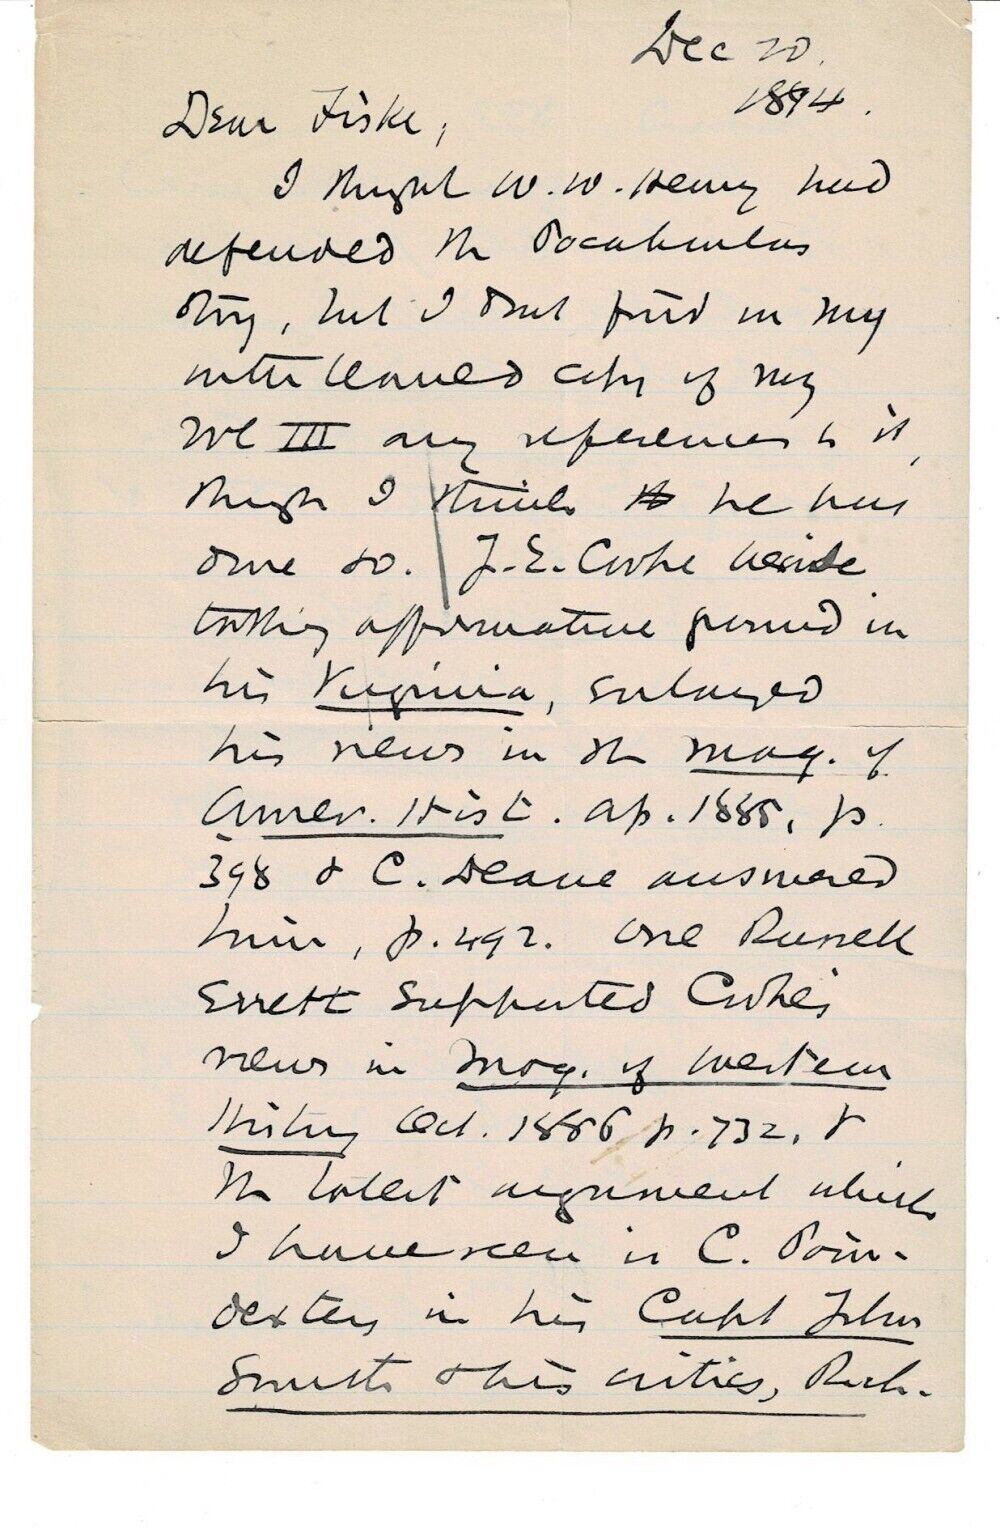 Dec 20.
1894.
Dear Fiske,
I thought W. W. Henry had
defended the Pocahontas
story, but I don't find in my
interleaved copy of my
Vol III any references to it,
though I think he has
done so. J. E. Cooke beside
taking affirmative ground in
his Virginia, enlarged
his views in the Mag. of
Amer. Hist. Ap. 1885, p.
398 & C. Deane answered
him, p. 492. One Russell
Errett supported Cooke's
views in Mag. of Western
History Oct. 1886 p. 732, &
the latest argument which
I have seen is C. Poin-
dexter, in his Capt John
Smith & his critics, Rich-